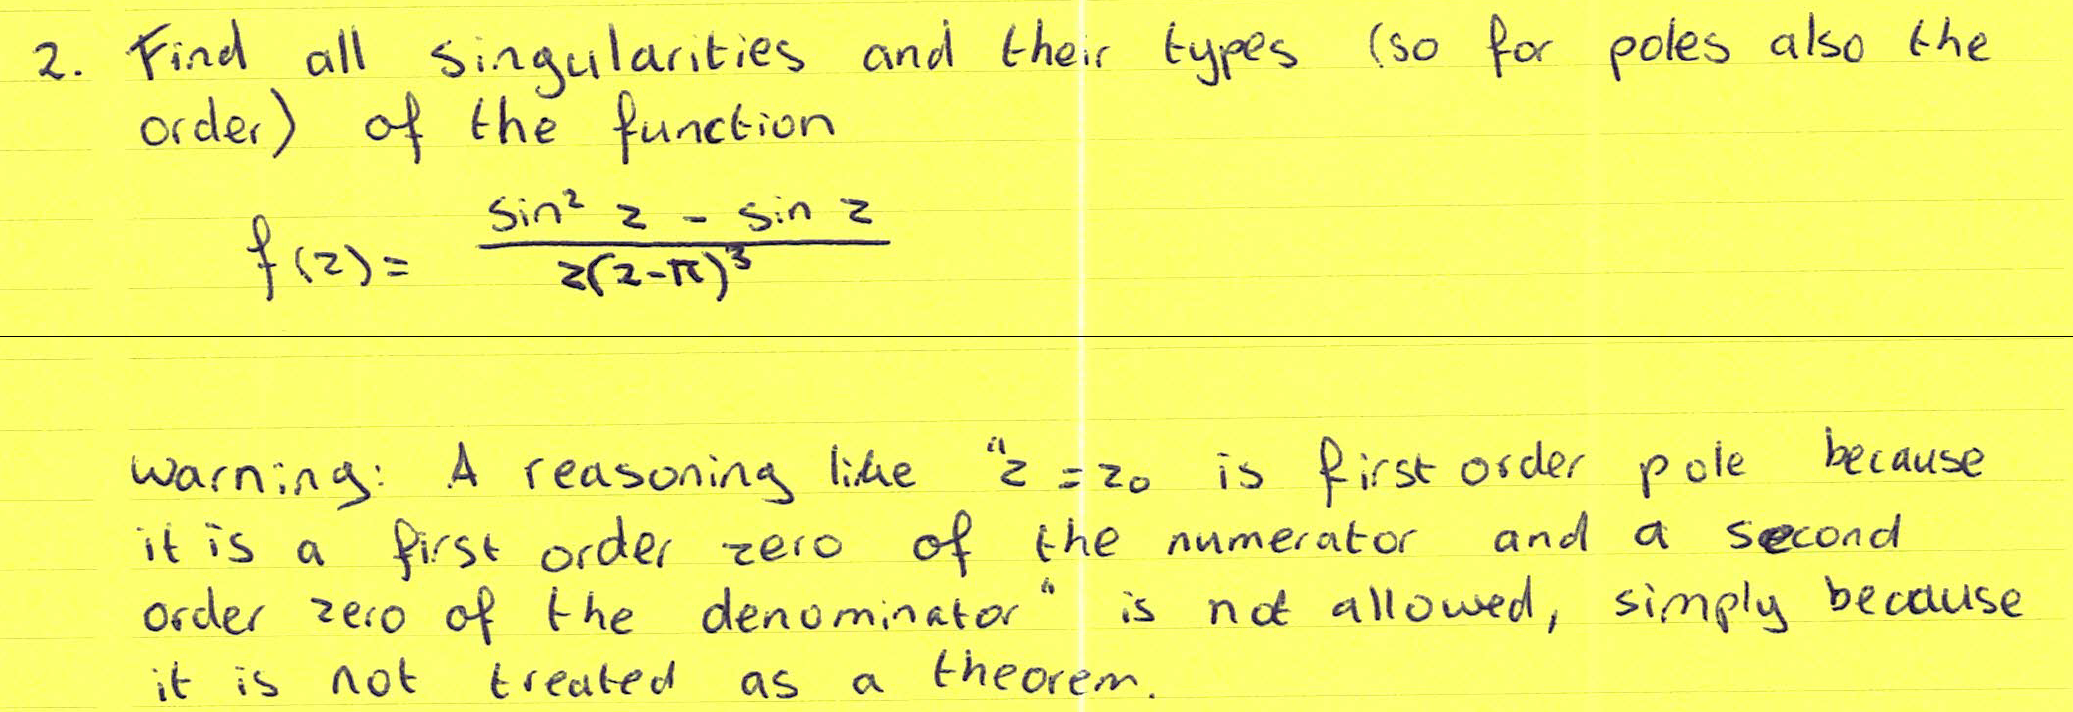 2. Find all singularities and their types (so for poles also the
order) of the function
f(z) = sin² z - sin z
z(z-π)³
Warning: A reasoning like "z = z₀ is first order pole because
it is a first order zero of the numerator and a second
order zero of the denominator" is not allowed, simply because
it is not treated as a theorem.